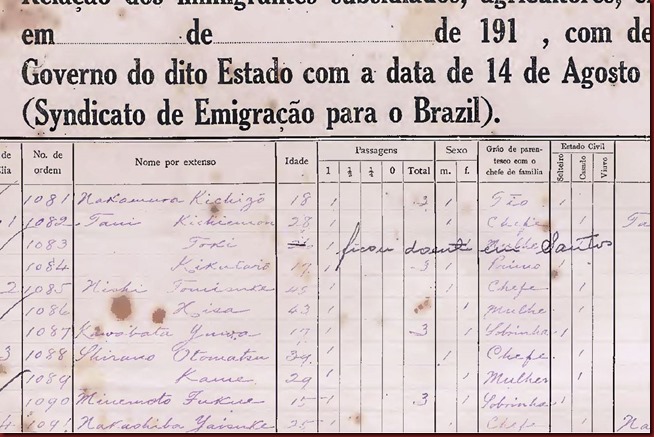 Relação dos immigrantes subsidiados, agricultores,
em de de 191 , com de
Governo do dito Estado com a data de 14 de Agosto
(Syndicato de Emigração para o Brazil).
de
lia
No. de ordem
Nome por extenso
Idade
Passagens
1 ½ ¼ 0 Total
Sexo
m. f.
Gráo de parentesco com o chefe de familia
Estado Civil
Solteiro Casado Viuvo
1081 Nakamura Kichizō 18 1 3 1 Tio 1
1 1082 Tani Kichiemon 28 1 1 Chefe 1 Ta
1083 Toki ficou doente em Santos
1084 Kikutarō 17 1 3 1 Primo 1
2 1085 Nishi Tomisuke 45 1 1 Chefe 1
1086 Hisa 43 1 1 Mulher 1
1087 Kawabata 17 1 3 1 Sobrinha 1
3 1088 Shirano Otomatsu 29 1 1 Chefe 1
1089 Kame 29 1 1 Mulher 1
1090 Minemoto Fukue 15 1 3 1 Sobrinha 1
4 1091 Nakashiba Yaisuke 25 1 1 Chefe 1 Na